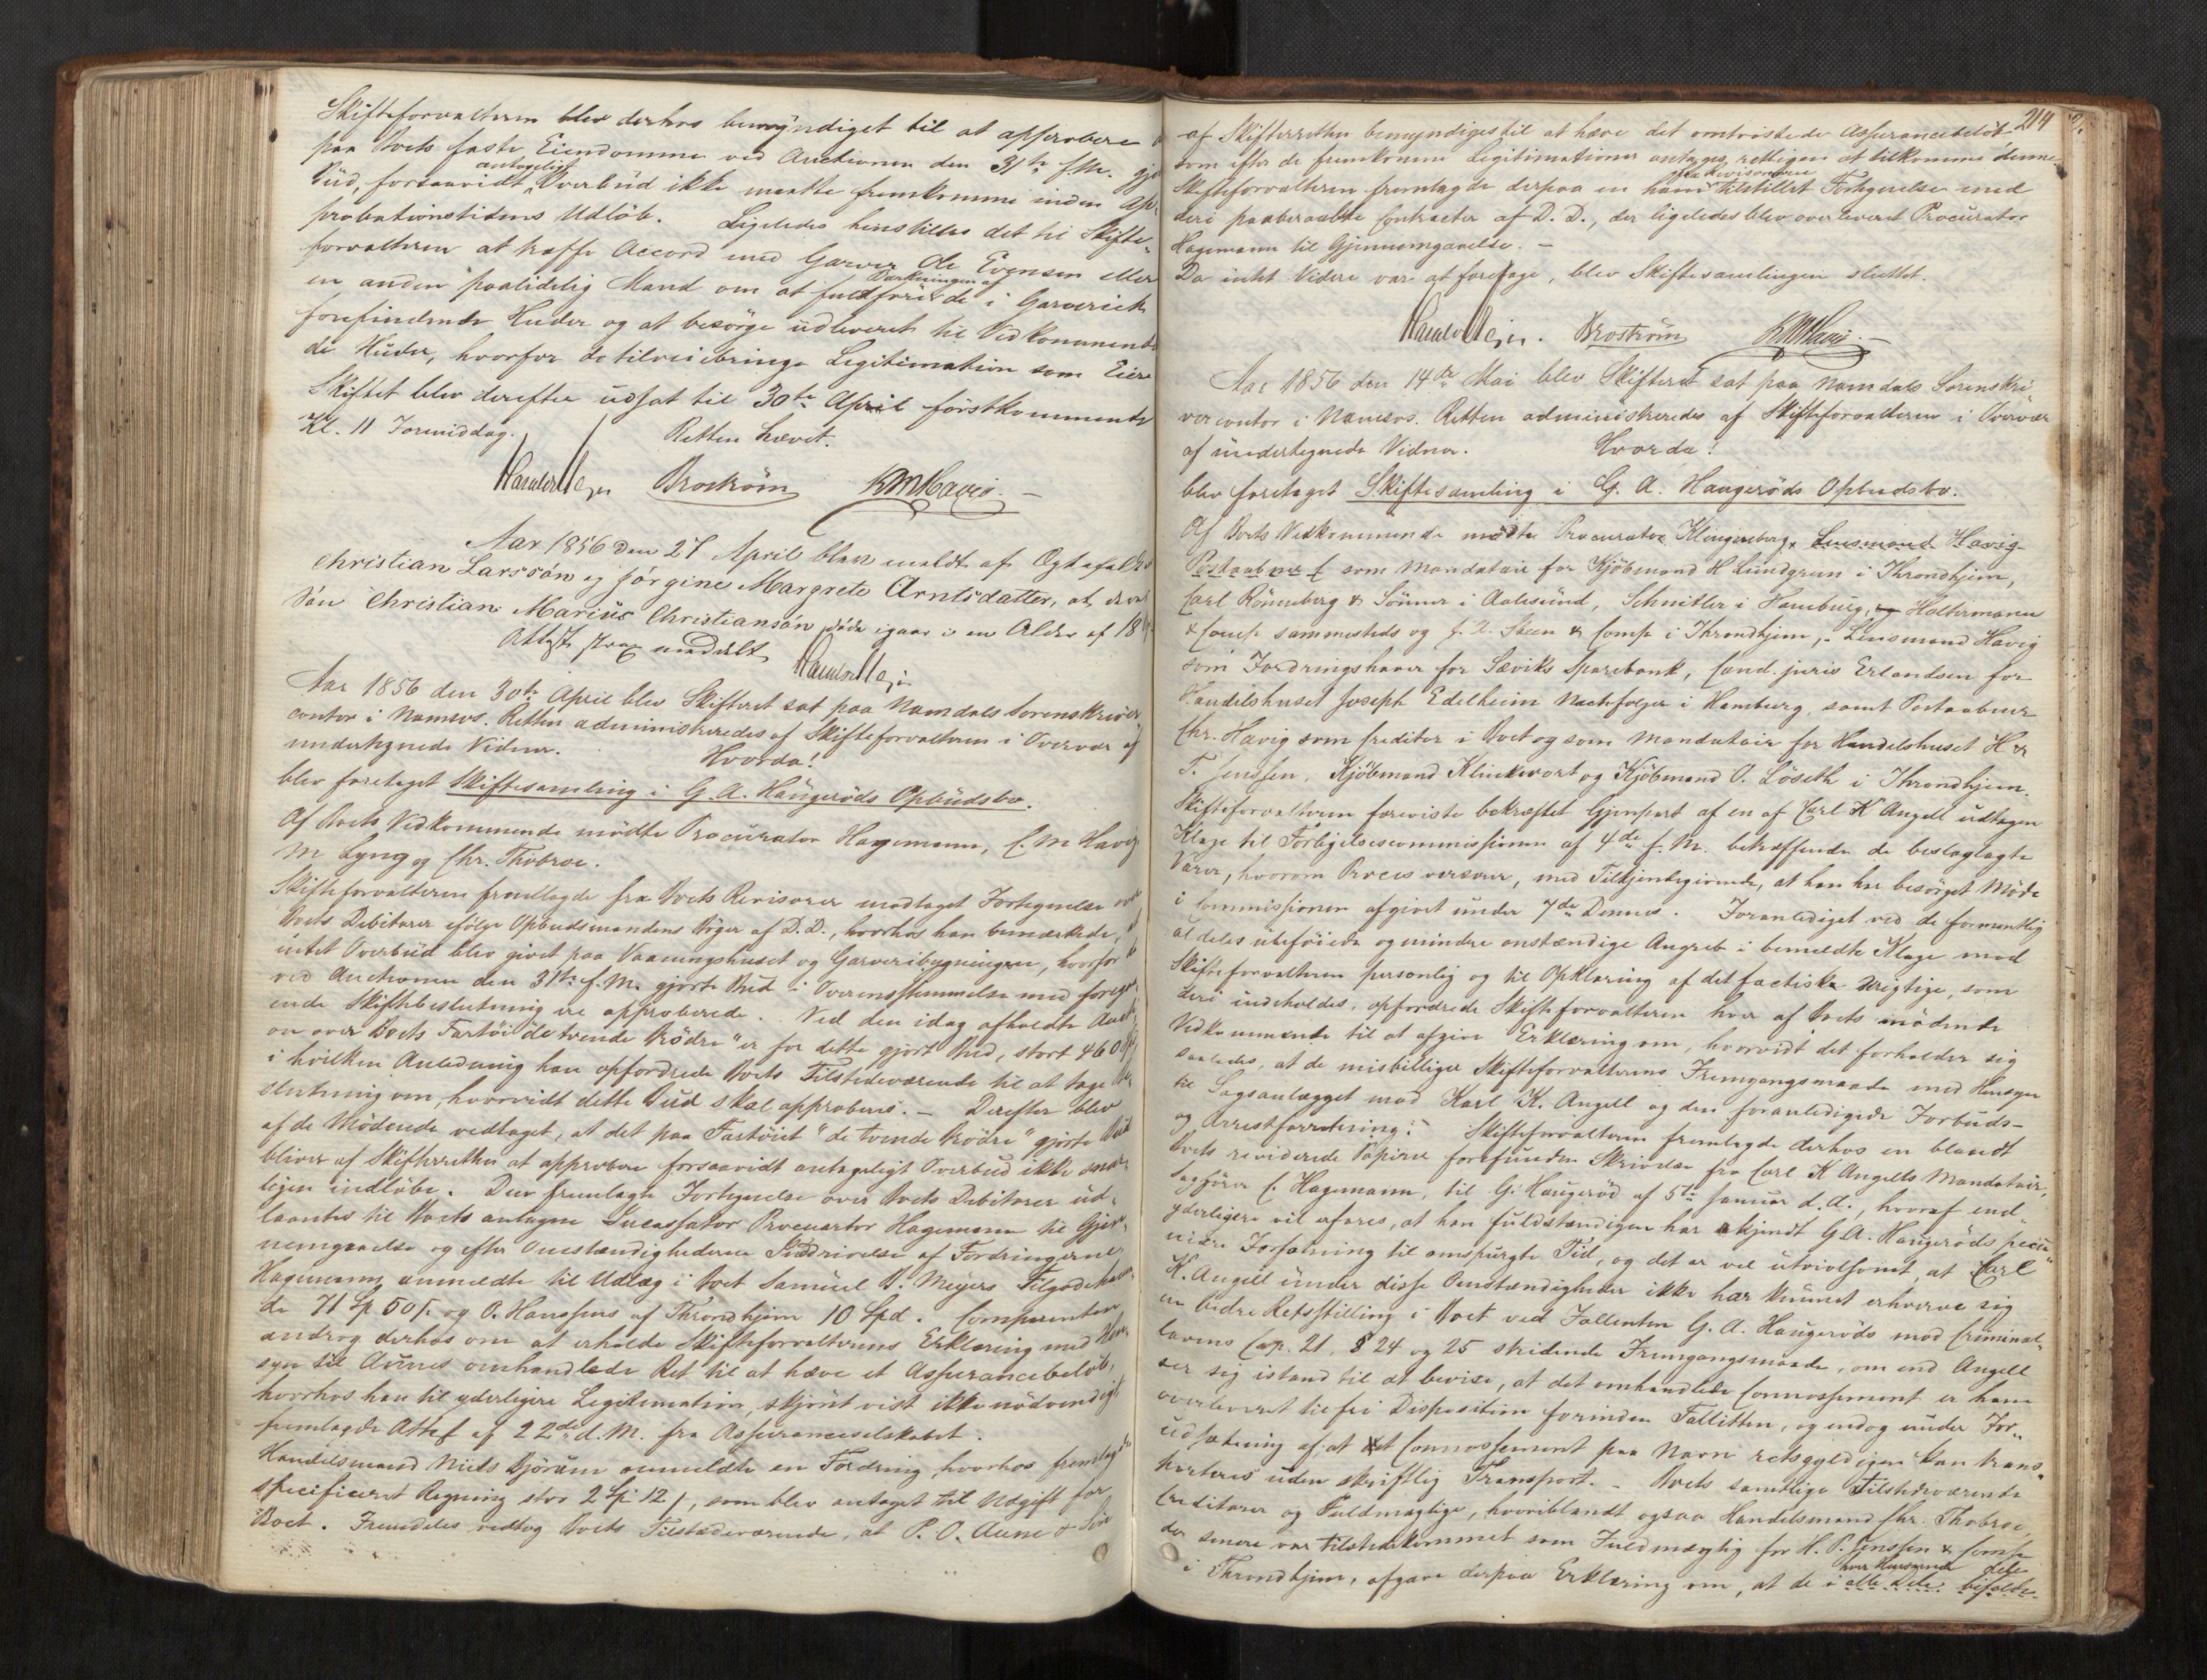 Skifteforvalteren blev derhos bemyndiget til at approbere
paa Boets faste Eiendomme ved Auctionen den 31te f.M.
antageligt
Bud, forsaavidt Overbud ikke maatte fremkomme inden Ap-
probationstidens Udløb. Ligeledes henstilles det til Skifte-
forvalteren at træffe Accord med Garver Ole Evensen eller
Barkningen af
en anden paalidelig Mand om at fuldføre de i Garveriet
forefindende Huder og at besørge udleveret til Vedkommende
de Huder, hvorfor de tilveiebringe Legitimation som Eiere
Skiftet blev derefter udsat til 30te April førstkommende
Kl. 11 Formiddag. Retten hævet.
Broström KMHavig
Aar 1856 den 27 April blev meldt af Egtefolk
Christian Larssøn og Jørgine Margrete Arntsdatter, at deres
Søn Christian Marius Christiansøn døde igaar i en Alder af 18
Attest strax meddelt
Aar 1856 den 30te April blev Skifteret sat paa Namdals Sorenskriver
contor i Namsos. Retten administreredes af Skifteforvalteren i Overvær af
undertegnede Vidner. Hvorda!
blev foretaget Skiftesamling i G. A. Haugerøds Opbudsbo.
Af Boets Vedkommende mødte Procurator Hagemann, C. M Havig
M Lyng og Chr. Thobroe.
Skifteforvalteren fremlagde fra Boets Revisorer modtaget Fortegnelse over
Boets Debitorer ifølge Opbudsmandens Bøger af D.D., hvorhos han bemærkede, at
intet Overbud blev givet paa Vaaningshuset og Garveribygningen, hvorfor
ved Auctionen den 31te f. M. gjorte Bud i Overensstemmelse med foregaa-
ende Skiftebeslutning er approberede. Ved den idag afholdte Aucti-
on over Boets Fartøi "de tvende Brødre" er for dette gjort Bud, stort 460
i hvilken Anledning han opfordrede Boets Tilstedeværende til at tage Be-
slutning om, hvorvidt dette Bud skal approberes. – Derefter blev
af de Mødende vedtaget, at det paa Fartøiet "de tvende Brødre" gjorte Bud
bliver af Skifteretten at approbere forsaavidt antageligt Overbud ikke snar-
ligen indløbe. Den fremlagte Fortegnelse over Boets Debitorer ud-
laantes til Boets antagne Incassator Procurator Hagemann til Gjen-
nemgaaelse og efter Omstændighederne Inddrivelse af Fordringerne
Hagemann anmeldte til Udlæg i Boet Samuel B. Meyers Tilgodehaven-
de 71 Sp 50 s. og O. Hanssens af Throndhjem 10 Spd. Comparenten
androg derhos om at erholde Skifteforvalterens Erklæring med Hen-
syn til Aunes omhandlede Ret til at hæve et Assurancebeløb,
hvorhos han til yderligere Legitimation, skjønt vist ikke nødvendigt
fremlagde Attest af 22de d.M. fra Assuranceselskabet.
Handelsmand Niels Bjørum anmeldte en Fordring, hvorhos fremlagdes
specificeret Regning stor 2 Sp 12 s, som blev antaget til Udgift for
Boet. Fremdeles vedtog Boets Tilstedeværende, at P. O. Aune &
214
af Skifteretten bemyndiges til at hæve det omtvistede Assurancebeløb
som efter de fremkomne Legitimationer antages rettigen at tilkomme denne
fra Revisorerne
Skifteforvalteren fremlagde derpaa en ham tilstillet Fortegnelse med
deri paaberaabte Contracter af D. D., der ligeledes blev overleveret Procurator
Hagemann til Gjennemgaaelse. –
Da intet Videre var at foretage, blev Skiftesamlingen sluttet.
Broström KMHavig
Aar 1856 den 14de Mai blev Skifteret sat paa Namdals Sorenskri-
vercontor i Namsos. Retten administreredes af Skifteforvalteren i Overvær
af undertegnede Vidner. Hvorda!
blev foretaget Skiftesamling i G. A. Haugerøds Opbudsbo.
Af Boets Vedkommende mødte Procurator Klingenberg, Lensmand Havig
Postaabner som Mandatair for Kjøbmand H Lundgreen i Throndhjem,
Carl Rönneberg & Sønner i Aalesund, Schnitler i Hamburg, og Haltermann
& Comp sammesteds og J. N. Steen & Comp i Throndhjem, Lensmand Havig
som Fordringshaver for Sæviks Sparebank, Cand. juris Erlandsen for
Handelshuset Joseph Edelheim Nachfolger i Hamburg, samt Postaabner
Chr. Havig som Creditor i Boet og som Mandatair for Handelshuset H &
T. Jenssen, Kjøbmand Klinkevort og Kjøbmand O. Løseth i Throndhjem.
Skifteforvalteren foreviste bekræftet Gjenpart af en af Carl K Angell udtagen
Klage til Forligelsescommissionen af 4de f. M. betræffende de beslaglagte
Varer, hvorom Proces verserer, med Tilkjendegivende, at han har besørget Møde
i Commissionen afgivet under 7de Dennes. Foranlediget ved de formentlig
aldeles ubeføiede og mindre anstændige Angreb i bemeldte Klage mod
Skifteforvalteren personlig og til Opklaring af det factiske Urigtige, som
deri indeholdes, opfordrede Skifteforvalteren hver af Boets mødende
Vedkommende til at afgive Erklæring om, hvorvidt det forholder sig
saaledes, at de misbilliger Skifteforvalterens Fremgangsmaade med Hensyn
til Sagsanlægget mod Karl K. Angell og den foranledigede Forbuds-
og Arrestforretning. Skifteforvalteren fremlagde derhos en blandt
Boets reviderede Papirer forefunden Skrivelse fra Carl K Angells Mandatair,
Sagfører C. Hagemann, til G. Haugerød af 5te Januar d.A., hvoraf end-
yderligere vil erfares, at han fuldstændigen har kjendt G. A. Haugerøds pecu-
niære Forfatning til omspurgte Tid, og det er vel utvivlsomt, at Carl
K. Angell under disse Omstændigheder ikke har kunnet erhverve sig
en bedre Retsstilling i Boet ved Fallenten G. A. Haugerøds mod Criminal-
lovens Cap. 21, § 24 og 25 stridende Fremgangsmaade, om end Angell
ser sig istand til at bevise, at det omhandlede Connossement er ham
overleveret til fri Disposition forinden Fallitten, og endog under For-
udsætning af at et Connossement paa Navn retsgyldigen kan trans-
porteres uden skriftlig Transport. – Boets samtlige Tilstedeværende
Creditorer og Fuldmægtige, hvoriblandt ogsaa Handelsmand Chr. Thobroe,
der senere var tilstedekommet som Fuldmægtig for H. P. Jenssen & Comp
hver Henseende
i Throndhjem, afgave derpaa Erklæring om, at de i alle Dele